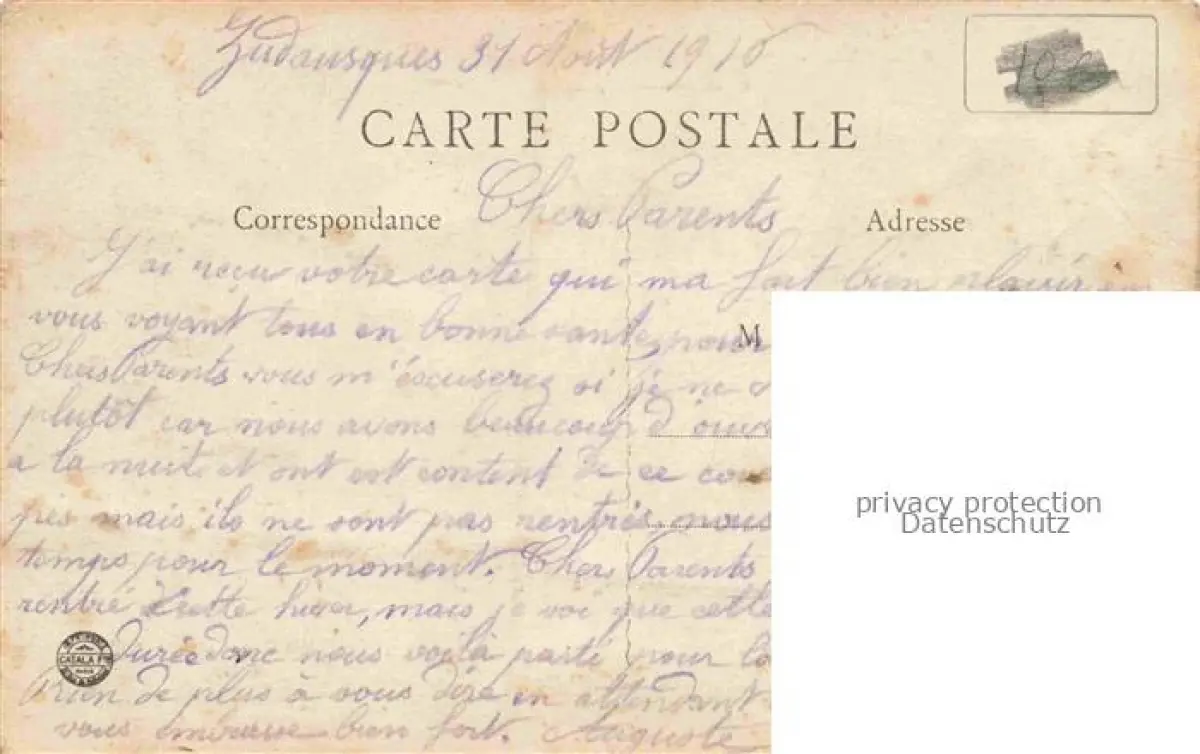 Zudausques 31 Août 191
CARTE POSTALE
Chers Parents
Correspondance
Adresse
J'ai reçu votre carte qui ma fait bien plaisir en
vous voyant tous en bonne sante, pour
M
Chers Parents vous m'éscuserez si je ne
plutôt car nous avons beaucoup d'ouvr
a la nuit et ont est content de ce cou
pés mais ils ne sont pas rentrés, nous
temps pour le moment. Chers Parents
rentré cette hiver, mais je voi que cette
durée donc nous voilà parti pour la
Rien de plus à vous dire en attendant
vous embrasse bien fort. Auguste
CATALA F
PARIS
privacy protection
Datenschutz